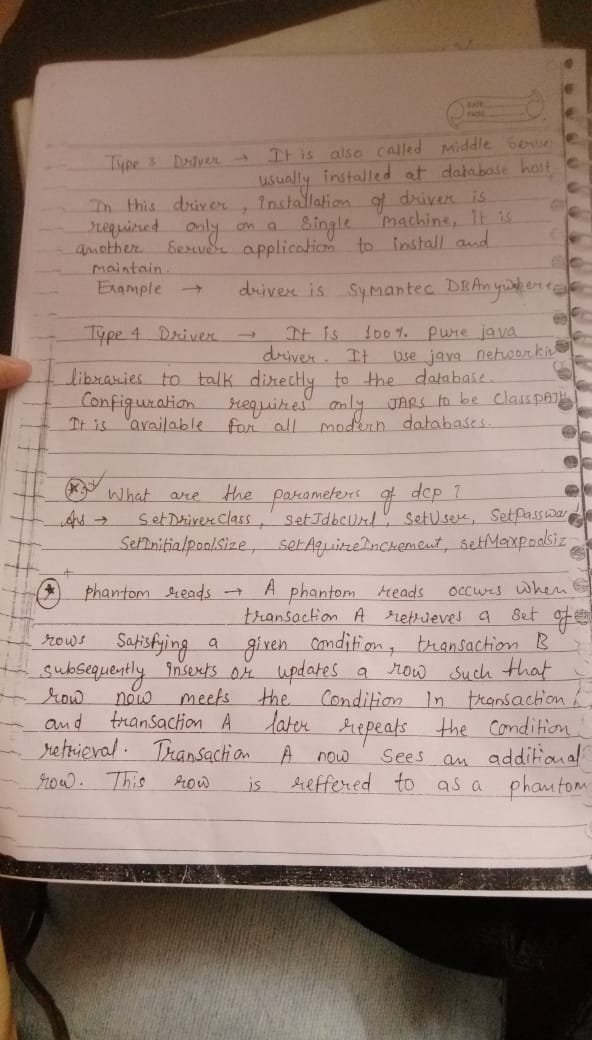 DATE
PAGE
Type 3 Driver → It is also called middle Serve
usually installed at database host,
In this driver, Installation of driver is
required only on a Single machine, it is
another Server application to install and
maintain.
Example → driver is Symantec DBAnywhere
Type 4 Driver → It is 100% pure java
driver. It use java networkin
libraries to talk directly to the database.
Configuration requires only JARs to be ClassPATH
It is available for all modern databases.
What are the parameters of dcp?
Ans → SetDriverClass, setJdbcUrl, SetUser, SetPasswor
SetInitialpoolSize, setAquireIncrement, setMaxpoolsiz
phantom reads → A phantom reads occurs when
transaction A retrieves a set of
rows Satisfying a given condition, transaction B
subsequently inserts or updates a row such that
row now meets the Condition In transaction
and transaction A later repeats the condition
retrieval. Transaction A now sees an additional
row. This row is reffered to as a phantom